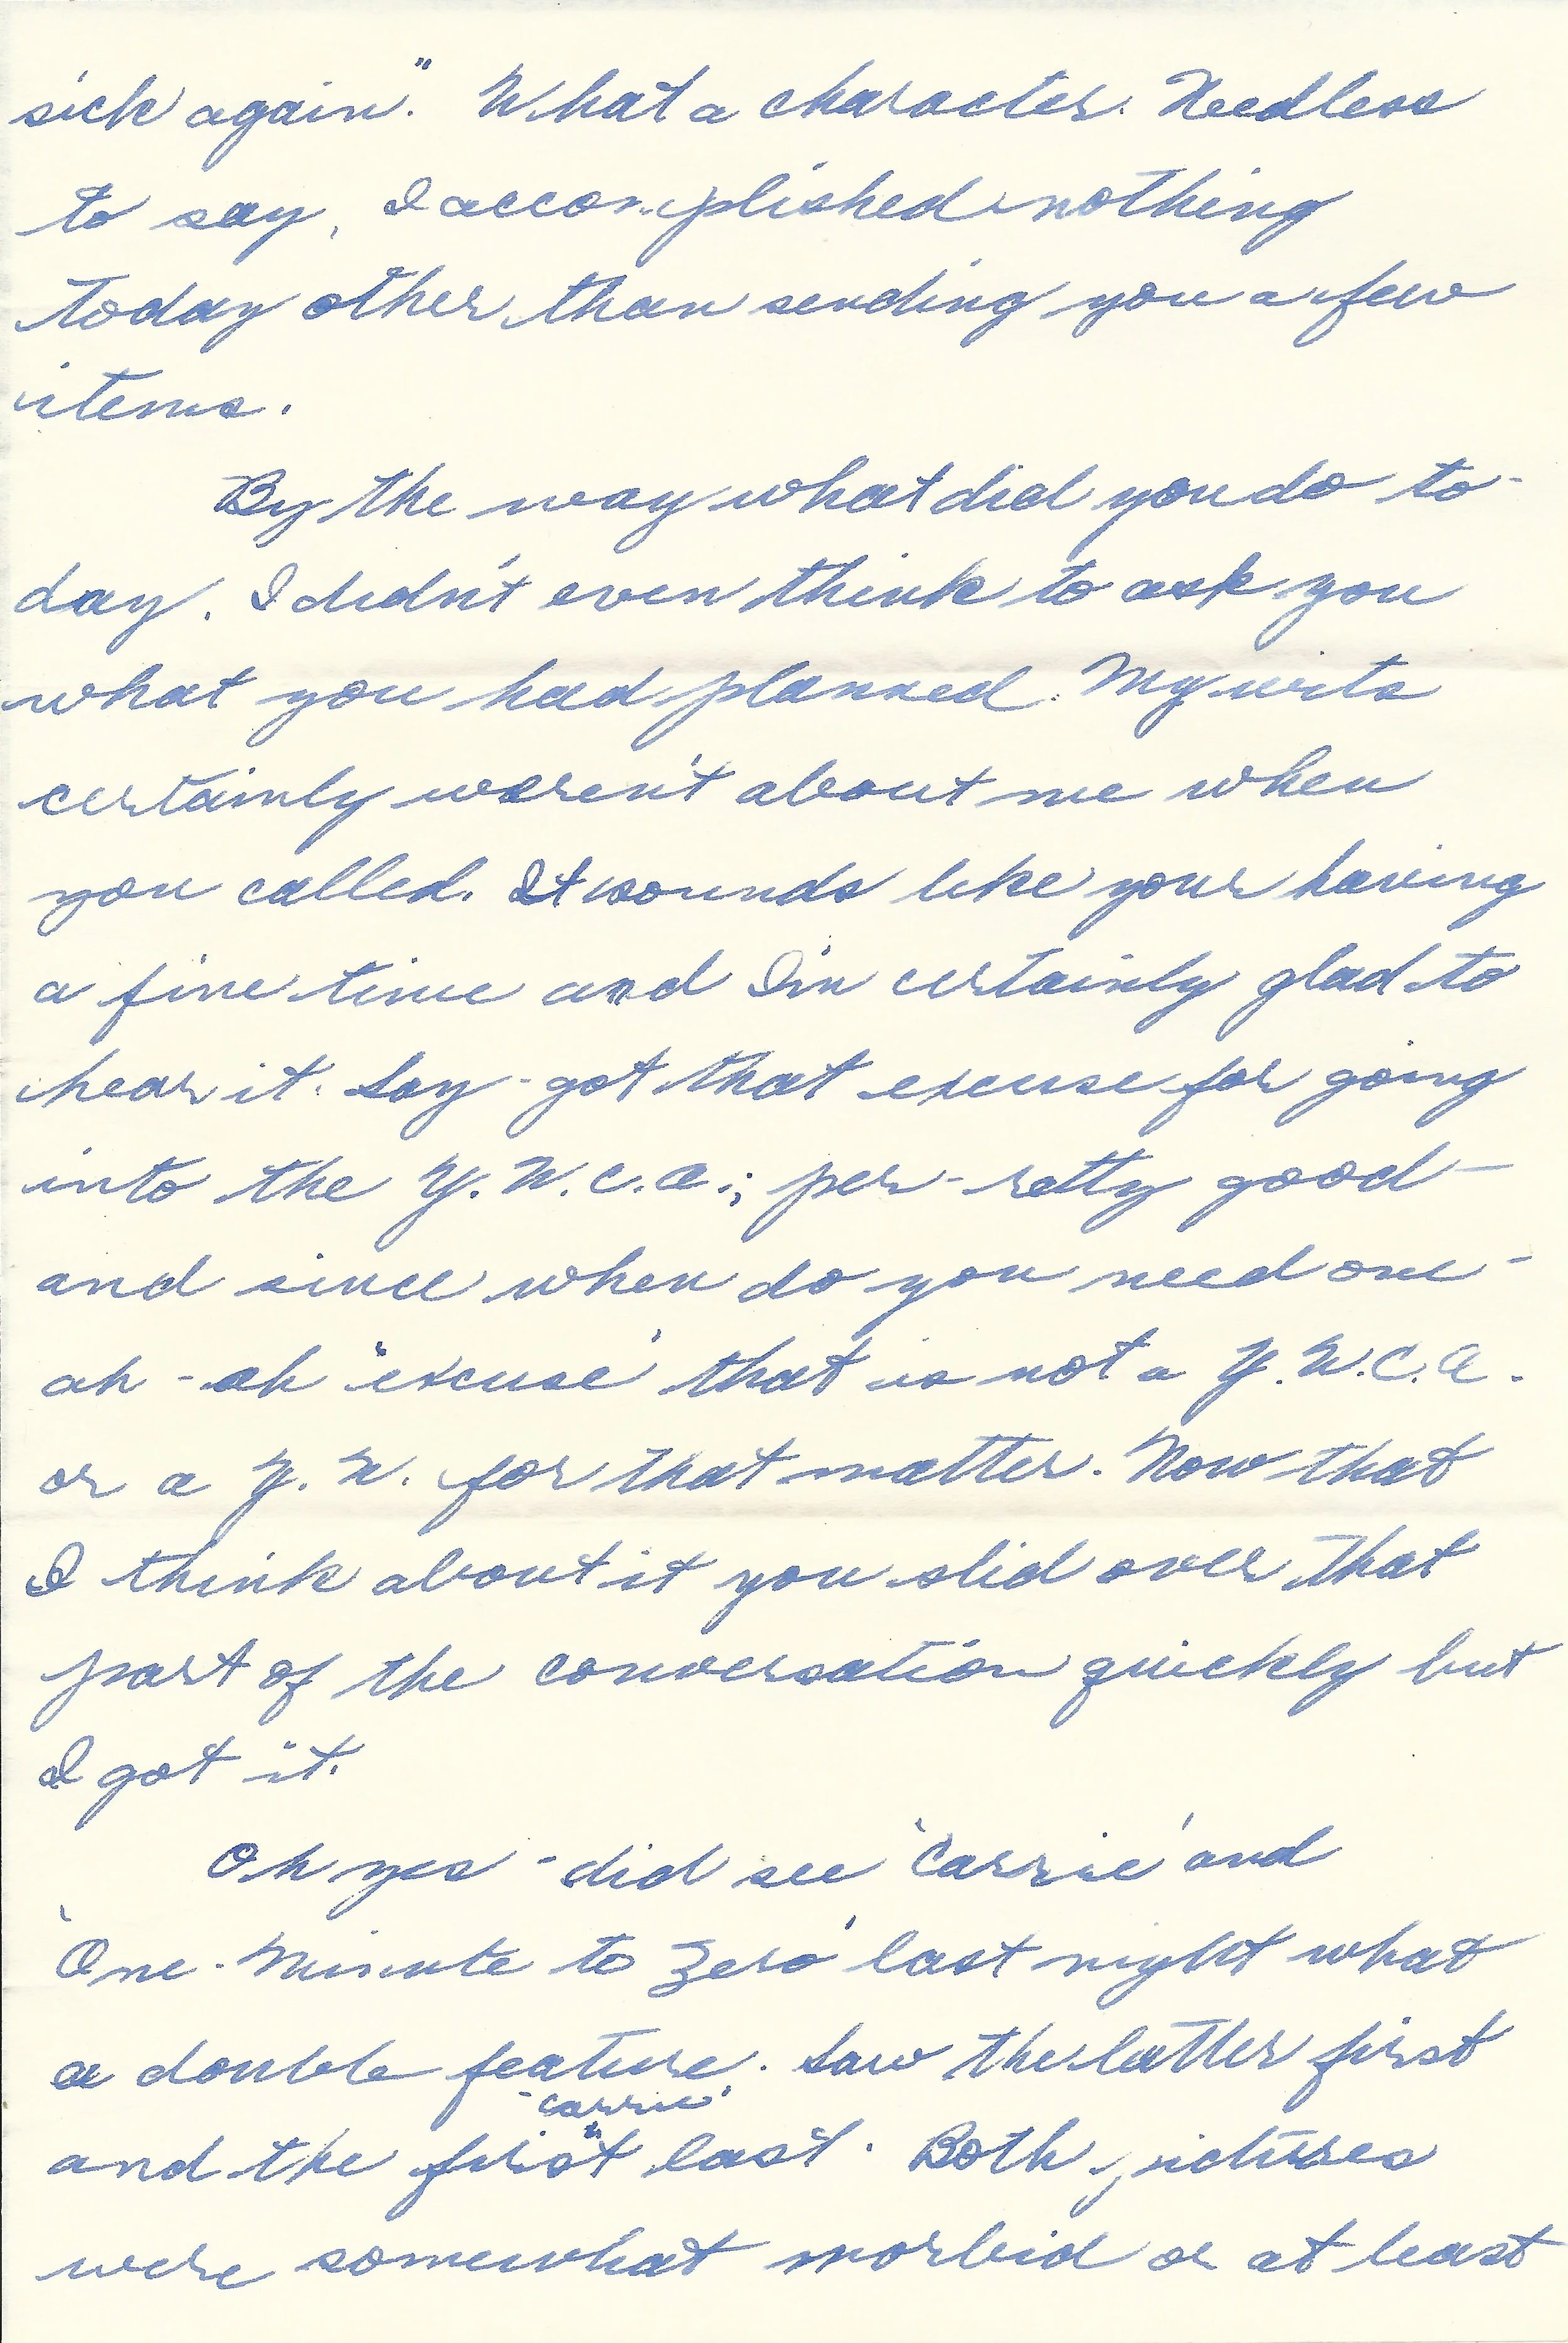 sick again." What a character. Needless
to say, I accomplished nothing
today other than sending you a few
items.
By the way what did you do to-
day. I didn't even think to ask you
what you had planned. My wits
certainly weren't about me when
you called. It sounds like your having
a fine time and I'm certainly glad to
hear it. Say - got that excuse for going
into the Y.W.C.A.; per-retty good -
and since when do you need one -
ah - ah 'excuse' that is not a Y.W.C.A.
or a Y.W. for that matter. Now that
I think about it you slid over that
part of the conversation quickly but
I got it.
Oh yes - did see 'Carrie' and
'One-Minute to Zero' last night what
a double feature. Saw the latter first
"Carrie"
and the first last. Both pictures
were somewhat morbid or at least